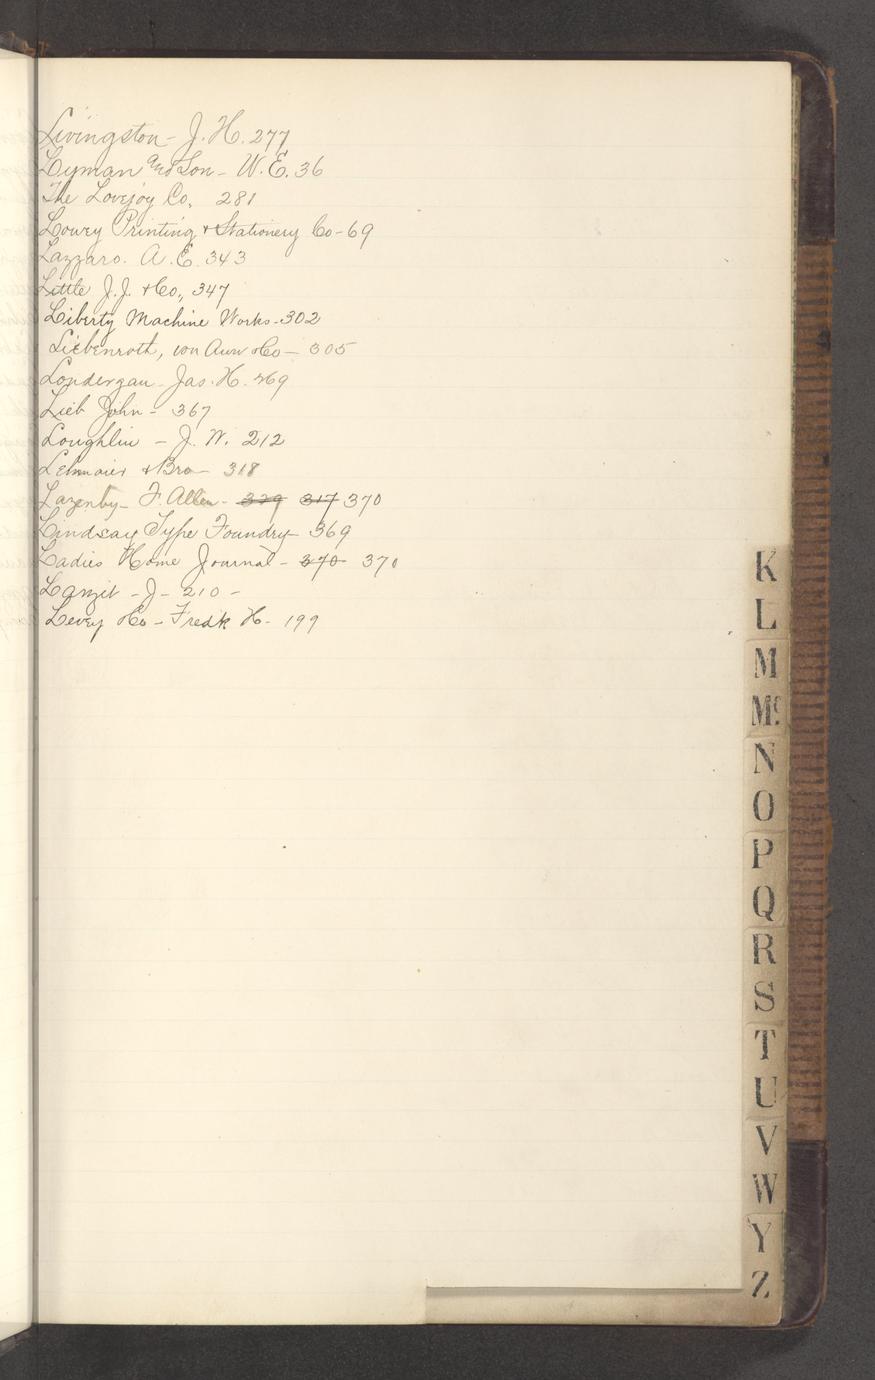 Livingston - J. H. 277
Lyman and Son - W. E. 36
The Lovejoy Co, 281
Lowey Printing & Stationery Co - 69
Lazzaro. A. E. 343
Little J. J. & Co., 347
Liberty Machine Works - 302
Liebenroth, von Auw & Co - 305
Londergan - Jas. H. 269
Lieb John - 367
Loughlin - J. W. 212
Lehmaier & Bro - 318
Lazenby - F. Allen - 329 317 370
Lindsay Type Foundry - 369
Ladies Home Journal - 370 370
- J - 210 -
Levey & Co - Fredk H - 199
K
L
M
Mc
N
O
P
Q
R
S
T
U
V
W
Y
Z